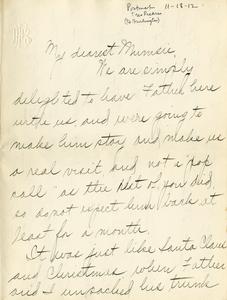 Postmark 11-18-12
My dearest Mimsie,
We are simply
delighted to have Father here
with us, and we're going to
make him stay and make us
a real visit and not a "pop
call" as the rest of you did,
so do not expect him back at
least for a month.
It was just like Santa Claus
and Christmas when Father
and I unpacked his trunk